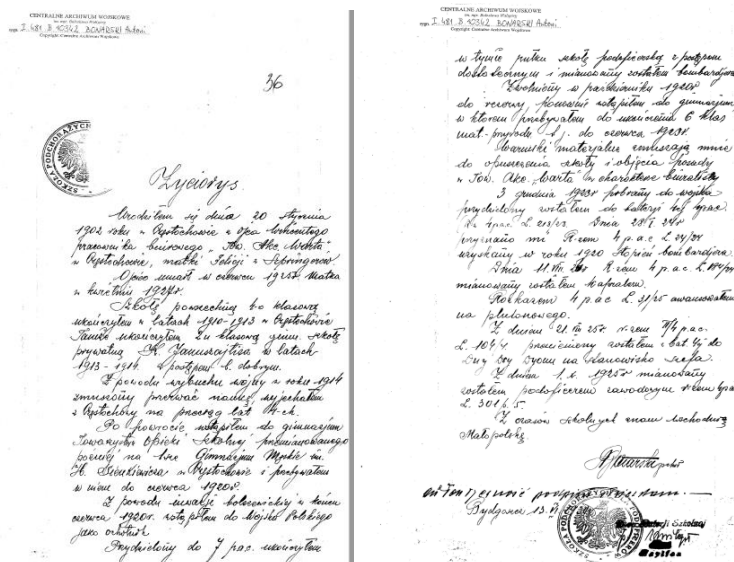 CENTRALNE ARCHIWUM WOJSKOWE
im. mjr. Bolesława Waligóry
sygn. I. 481. B. 10342 BONARSKI Antoni
Copyright Centralne Archiwum Wojskowe
36
SZKOŁA PODCHORĄŻYCH
Życiorys.
Urodziłem się dnia 20 stycznia
1902 roku w Częstochowie z ojca Wincentego
pracownika biurowego „Tow. Akc. Warta"
w Częstochowie, matki Felicji z
Ojciec umarł w czerwcu Matka
w kwietniu 1927r.
Szkołę powszechną klasową
ukończyłem w latach 1910-1913 w Częstochowie
Tamże ukończyłem 2u klasową gimn. szkołę
prywatną w latach
1913 - 1914. z postępem b. dobrym.
Z powodu wybuchu wojny w roku 1914
zmuszony przerwać naukę, wyjechałem
z Częstochowy na przeciąg lat 4-ch.
Po powrocie wstąpiłem do gimnazjum
Towarzystwa Opieki Szkolnej przemianowanego
później na Gimnazjum Męskie im.
H. Sienkiewicza w Częstochowie i przebywałem
w niem do czerwca 1920r.
Z powodu inwazji bolszewickiej w końcu
czerwca 1920r. wstąpiłem do Wojska Polskiego
jako ochotnik
Przydzielony do 7 pac. ukończyłem
CENTRALNE ARCHIWUM WOJSKOWE
im. mjr. Bolesława Waligóry
sygn. I. 481. B. 10342 BONARSKI Antoni
Copyright Centralne Archiwum Wojskowe
w tymże pułku szkołę podoficerską z postępem
dostatecznym i mianowany zostałem bombardjerem
Zwolniony w październiku 1920r
do rezerwy, ponownie wstąpiłem do gimnazjum
w którem przebywałem do ukończenia 6 klas
mat.-przyrod. t. j. do czerwca 1923r.
Warunki materjalne zmuszają mnie
do opuszczenia szkoły i objęcia posady
w Tow. Akc. „Warta" w charakterze biuralisty
3 grudnia 1923r pobrany do wojska
przydzielony zostałem do baterji 4 pac.
Dnia 28.I.24r
przyznano mi R-zem 4 p.a.c L. 24/24
uzyskany w roku 1920 stopień bombardjera.
Dnia 11. VIII R-zem 4 p.a.c. L.
mianowany zostałem kapralem.
Rozkazem 4 p.a.c L. 31/25 awansowałem
na plutonowego.
Z dniem 21. VII 25r. r-zem 4 p.a.c.
L. 104 przeniesiony zostałem z bat.
na stanowisko szefa.
Z dniem 1. 1925r mianowany
zostałem podoficerem zawodowym
L. 301 p. 5.
Z czasów szkolnych znam wschodnią
Małopolskę.
Bydgoszcz 13.